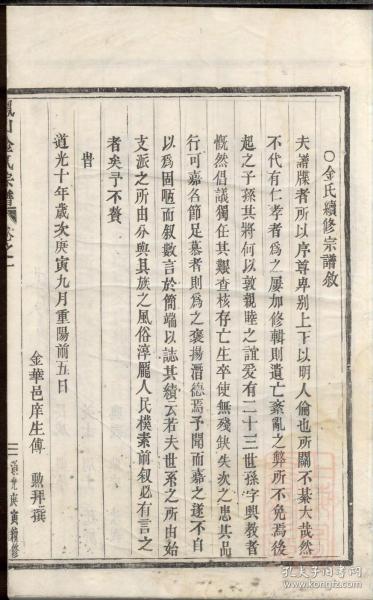 ○金氏續修宗譜敘
夫譜牒者所以序尊卑别上下以明人倫也所關不綦大哉然
不代有仁孝者爲之屢加修輯則遺亡紊亂之弊所不免焉後
起之子孫其將何以敦親睦之誼爰有二十三世孫字興教者
慨然倡議獨任其艱查核存亡生卒使無殘缺失次之患其品
行可嘉名節足慕者則爲之褒揚潛德焉予聞而嘉之遂不自
以爲固陋而叙數言於簡端以誌其績云若夫世系之所由始
支派之所由分與其族之風俗淳龎人民樸素前叙必有言之
者矣予不贅
旹
道光十年歲次庚寅九月重陽前五日
金華邑庠生傅 勲拜撰
山金氏宗譜 卷之一
道光庚寅續修
孔夫子旧书网